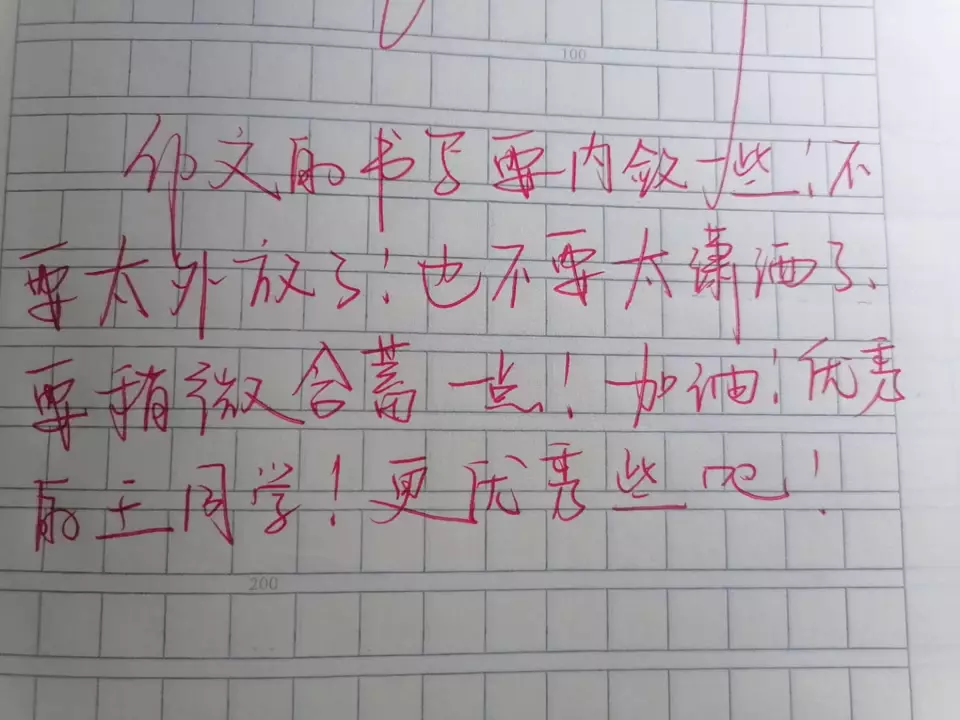 100
作文的书写要内敛一些！不
要太外放了！也不要太潇洒了、
要稍微含蓄一点！加油！优秀
的王同学！更优秀些吧！
200